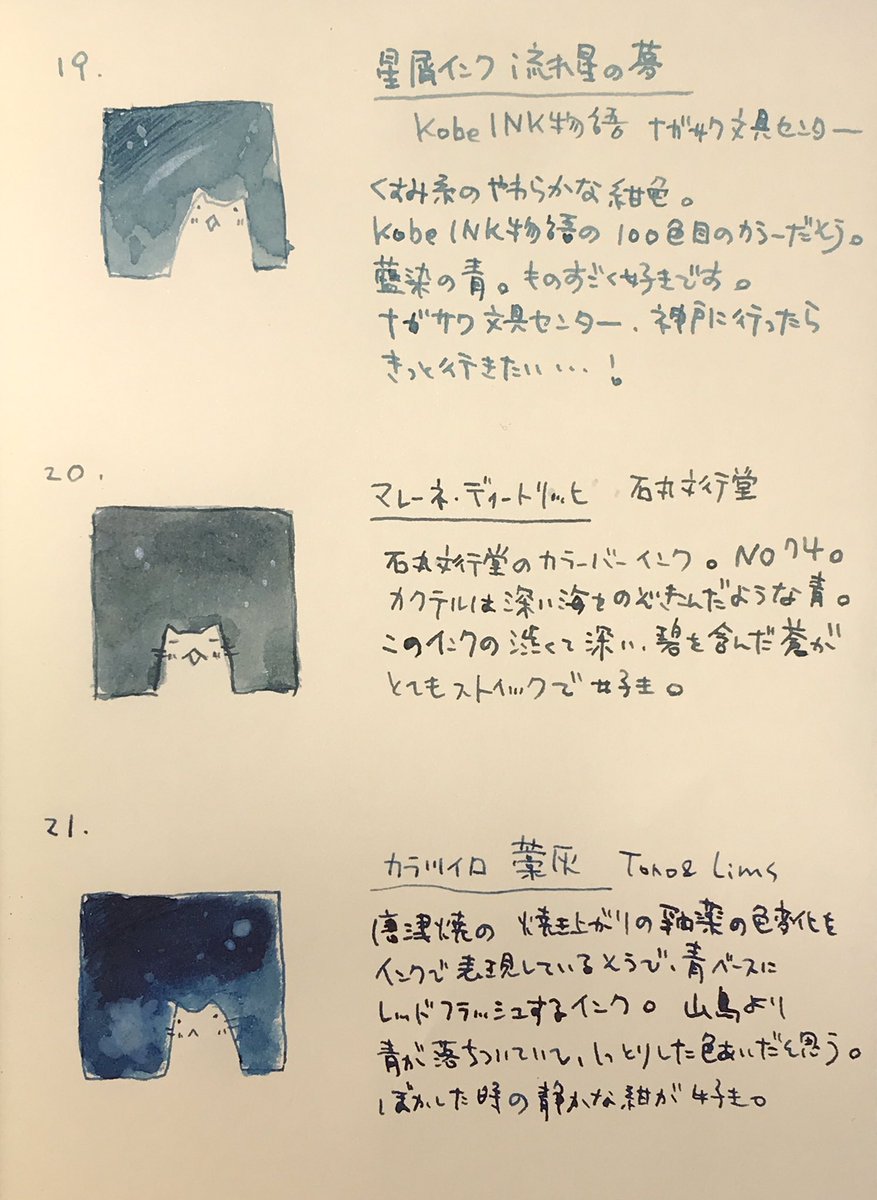 19.
星屑インク 流れ星の夢
Kobe INK物語 ナガサワ文具センター
くすみ系のやわらかな紺色。
Kobe INK物語の100色目のカラーだそう。
藍染の青。ものすごく好きです。
ナガサワ文具センター、神戸に行ったら
きっと行きたい…!
20.
マレーネ・ディートリッヒ 石丸文行堂
石丸文行堂のカラーバーインク。NO74。
カクテルは深い海をのぞきこんだような青。
このインクの渋くて深い、碧を含んだ蒼が
とてもストイックで好き。
21.
カラツイロ 藁灰 Tono& Lims
唐津焼の焼き上がりの釉薬の色変化を
インクで表現しているそうで、青ベースに
レッドフラッシュするインク。山鳥より
青が落ちついていて、しっとりした色あいだと思う。
ぼかした時の静かな紺が好き。